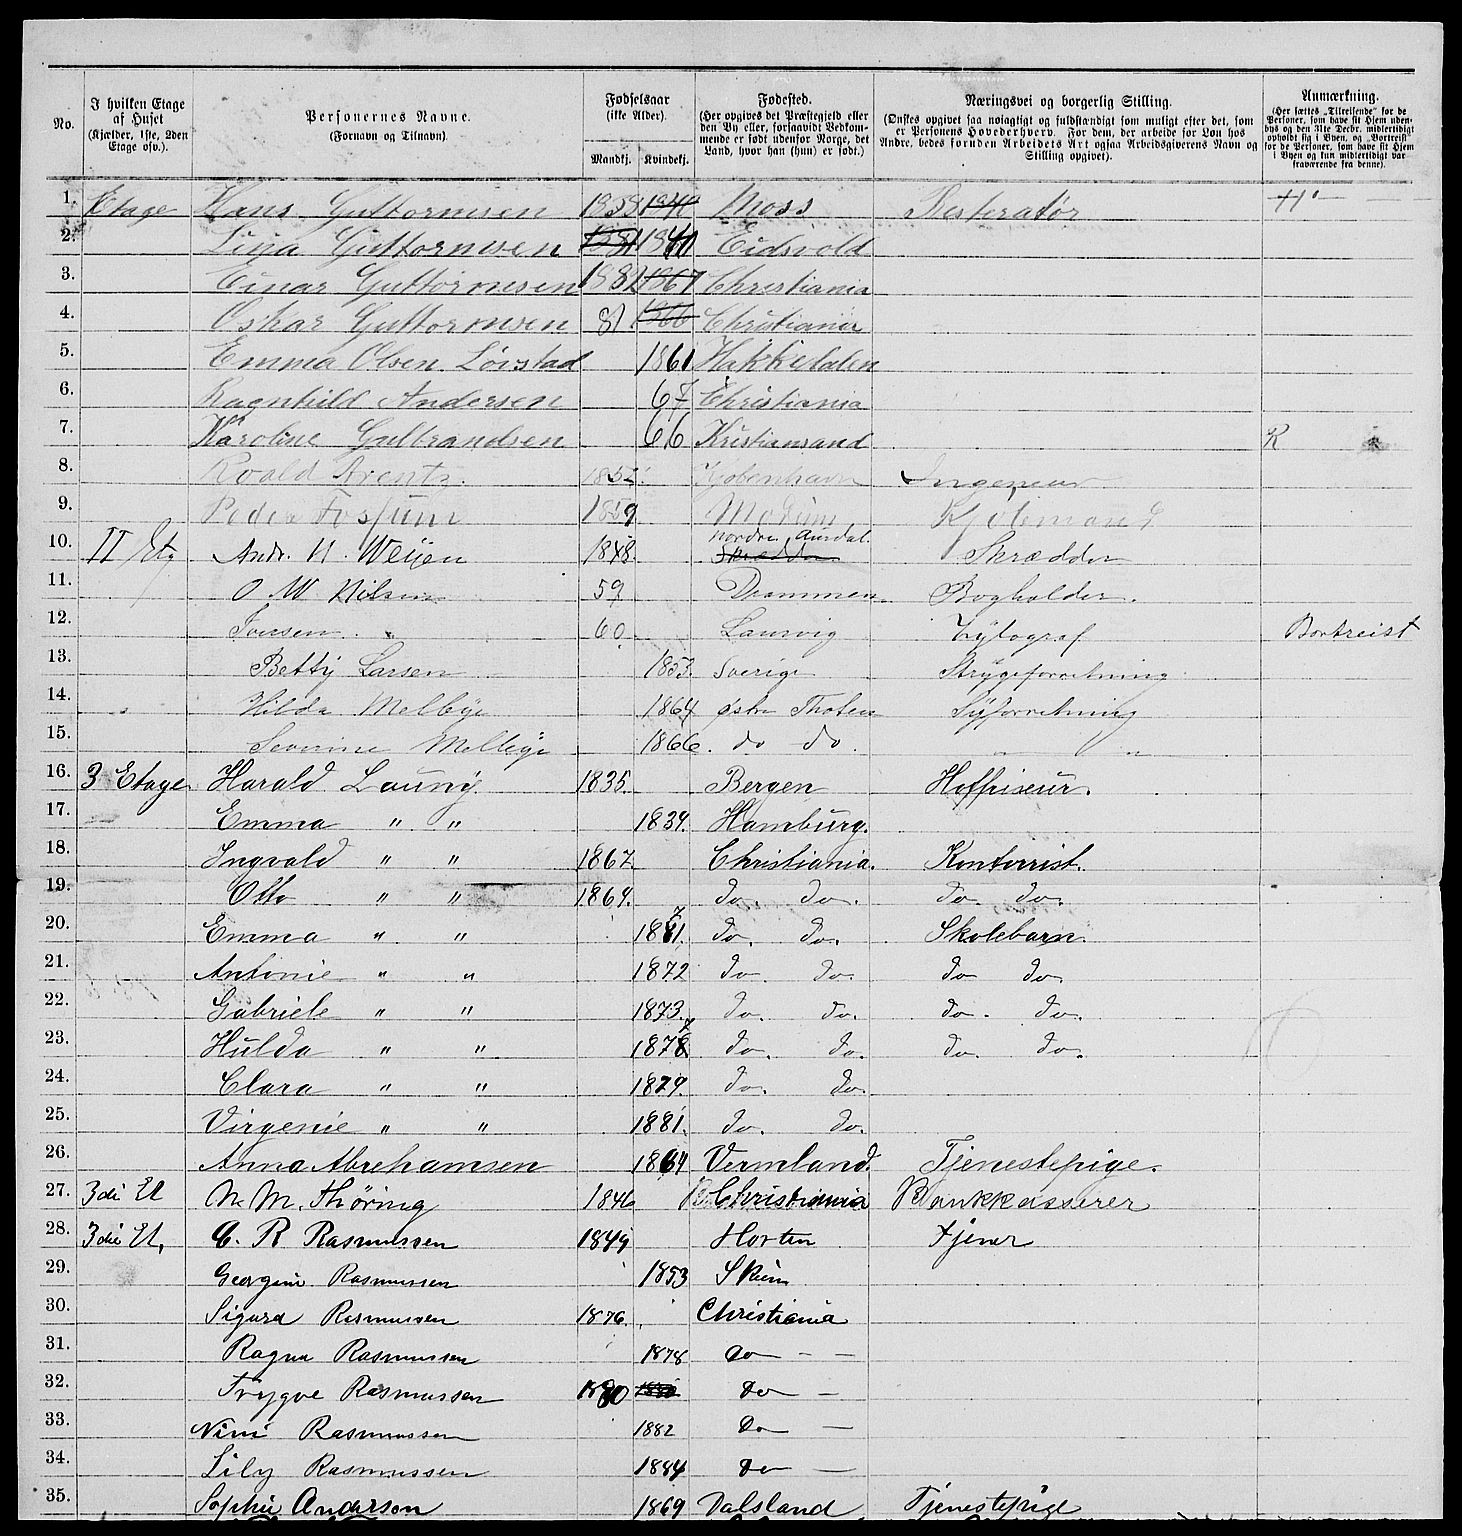 No.
I hvilken Etage af Huset (Kjælder, 1ste, 2den Etage osv.).
Personernes Navne. (Fornavn og Tilnavn).
Fødselsaar (ikke Alder).
Mandkj. Kvindekj.
Fødested. (Her opgives det Præstegjeld eller den By eller, forsaavidt Vedkommende er født udenfor Norge, det Land, hvor han (hun) er født.)
Næringsvei og borgerlig Stilling. (Ønskes opgivet saa nøiagtigt og fuldstændigt som muligt efter det, som er Personens Hovederhverv. For dem, der arbeide for Løn hos Andre, bedes foruden Arbeidets Art ogsaa Arbeidsgiverens Navn og Stilling opgivet).
Anmærkning. (Her sættes „Tilreisende" for de Personer, som have sit Hjem udenbys og den 31te Decbr. midlertidigt opholdt sig i Byen, og „Bortreist" for de Personer, som have sit Hjem i Byen og kun midlertidigt var fraværende fra denne).
1. Etage Hans Guttormsen 1858 Moss Resteratør
2. Guttormsen Eidsvold
3. Einar Guttormsen 1882 1867 Christiania
4. Oskar Guttormsen 81 1866 Christiania
5. Emma Olsen Lövstad 1861 Hakkedalen
6. Ragnhild Andersen 67 Christiania
7. Karoline Gulbrandsen 66 Kristiansand R
8. Roald Arentz 1852 Kjøbenhavn Ingeniør
9. Peder Fossum 1859 Modum
10. II Etg Andr. N. Weyen 1848 Nordre Aurdal Skrædder Skrædder
11. O W Nilsen 59 Drammen Bogholder.
12. 60 Laurvig Bortreist
13. Betty Larsen 1853. Sverige Strygeforretning
14. Hilda Melbye 1864 østre Thoten Syforretning
15. Severine Melbye 1866. do do. " "
16. 3 Etage Harald Launy 1835 Bergen
17. Emma " " 1839. Hamburg.
18. Ingvald " " 1862 Christiania. Kontorist.
19. Otto " " 1864. do. do. do. do.
20. Emma " " do. do. Skolebarn.
21. Antonie " " 1872 do. do. do do.
22. Gabriele " " 1873. do. do. do. do.
23. Hulda " " do. do. do. do.
24. Clara " " 1879. do. do.
25. Virgenie " " 1881. do. do.
26. Anna Abrehamsen 1864 Vermland. Tjenestepige.
27. 3die Et N. M. Thøring 1846 Christiania Bankkasserer
28. 3die Et. C. R Rasmussen 1849 Horten Tjener
29. Georgine Rasmussen 1853 Skien
30. Sigurd Rasmussen 1876. Christiania
31. Ragna Rasmussen 1878 do – –
32. Trygve Rasmussen 1880 1880 do –
33. Nini Rasmussen 1882 do –
34. Lily Rasmussen 1884 do –
35. Sophie Anderson 1869 Dalsland Tjenestepige